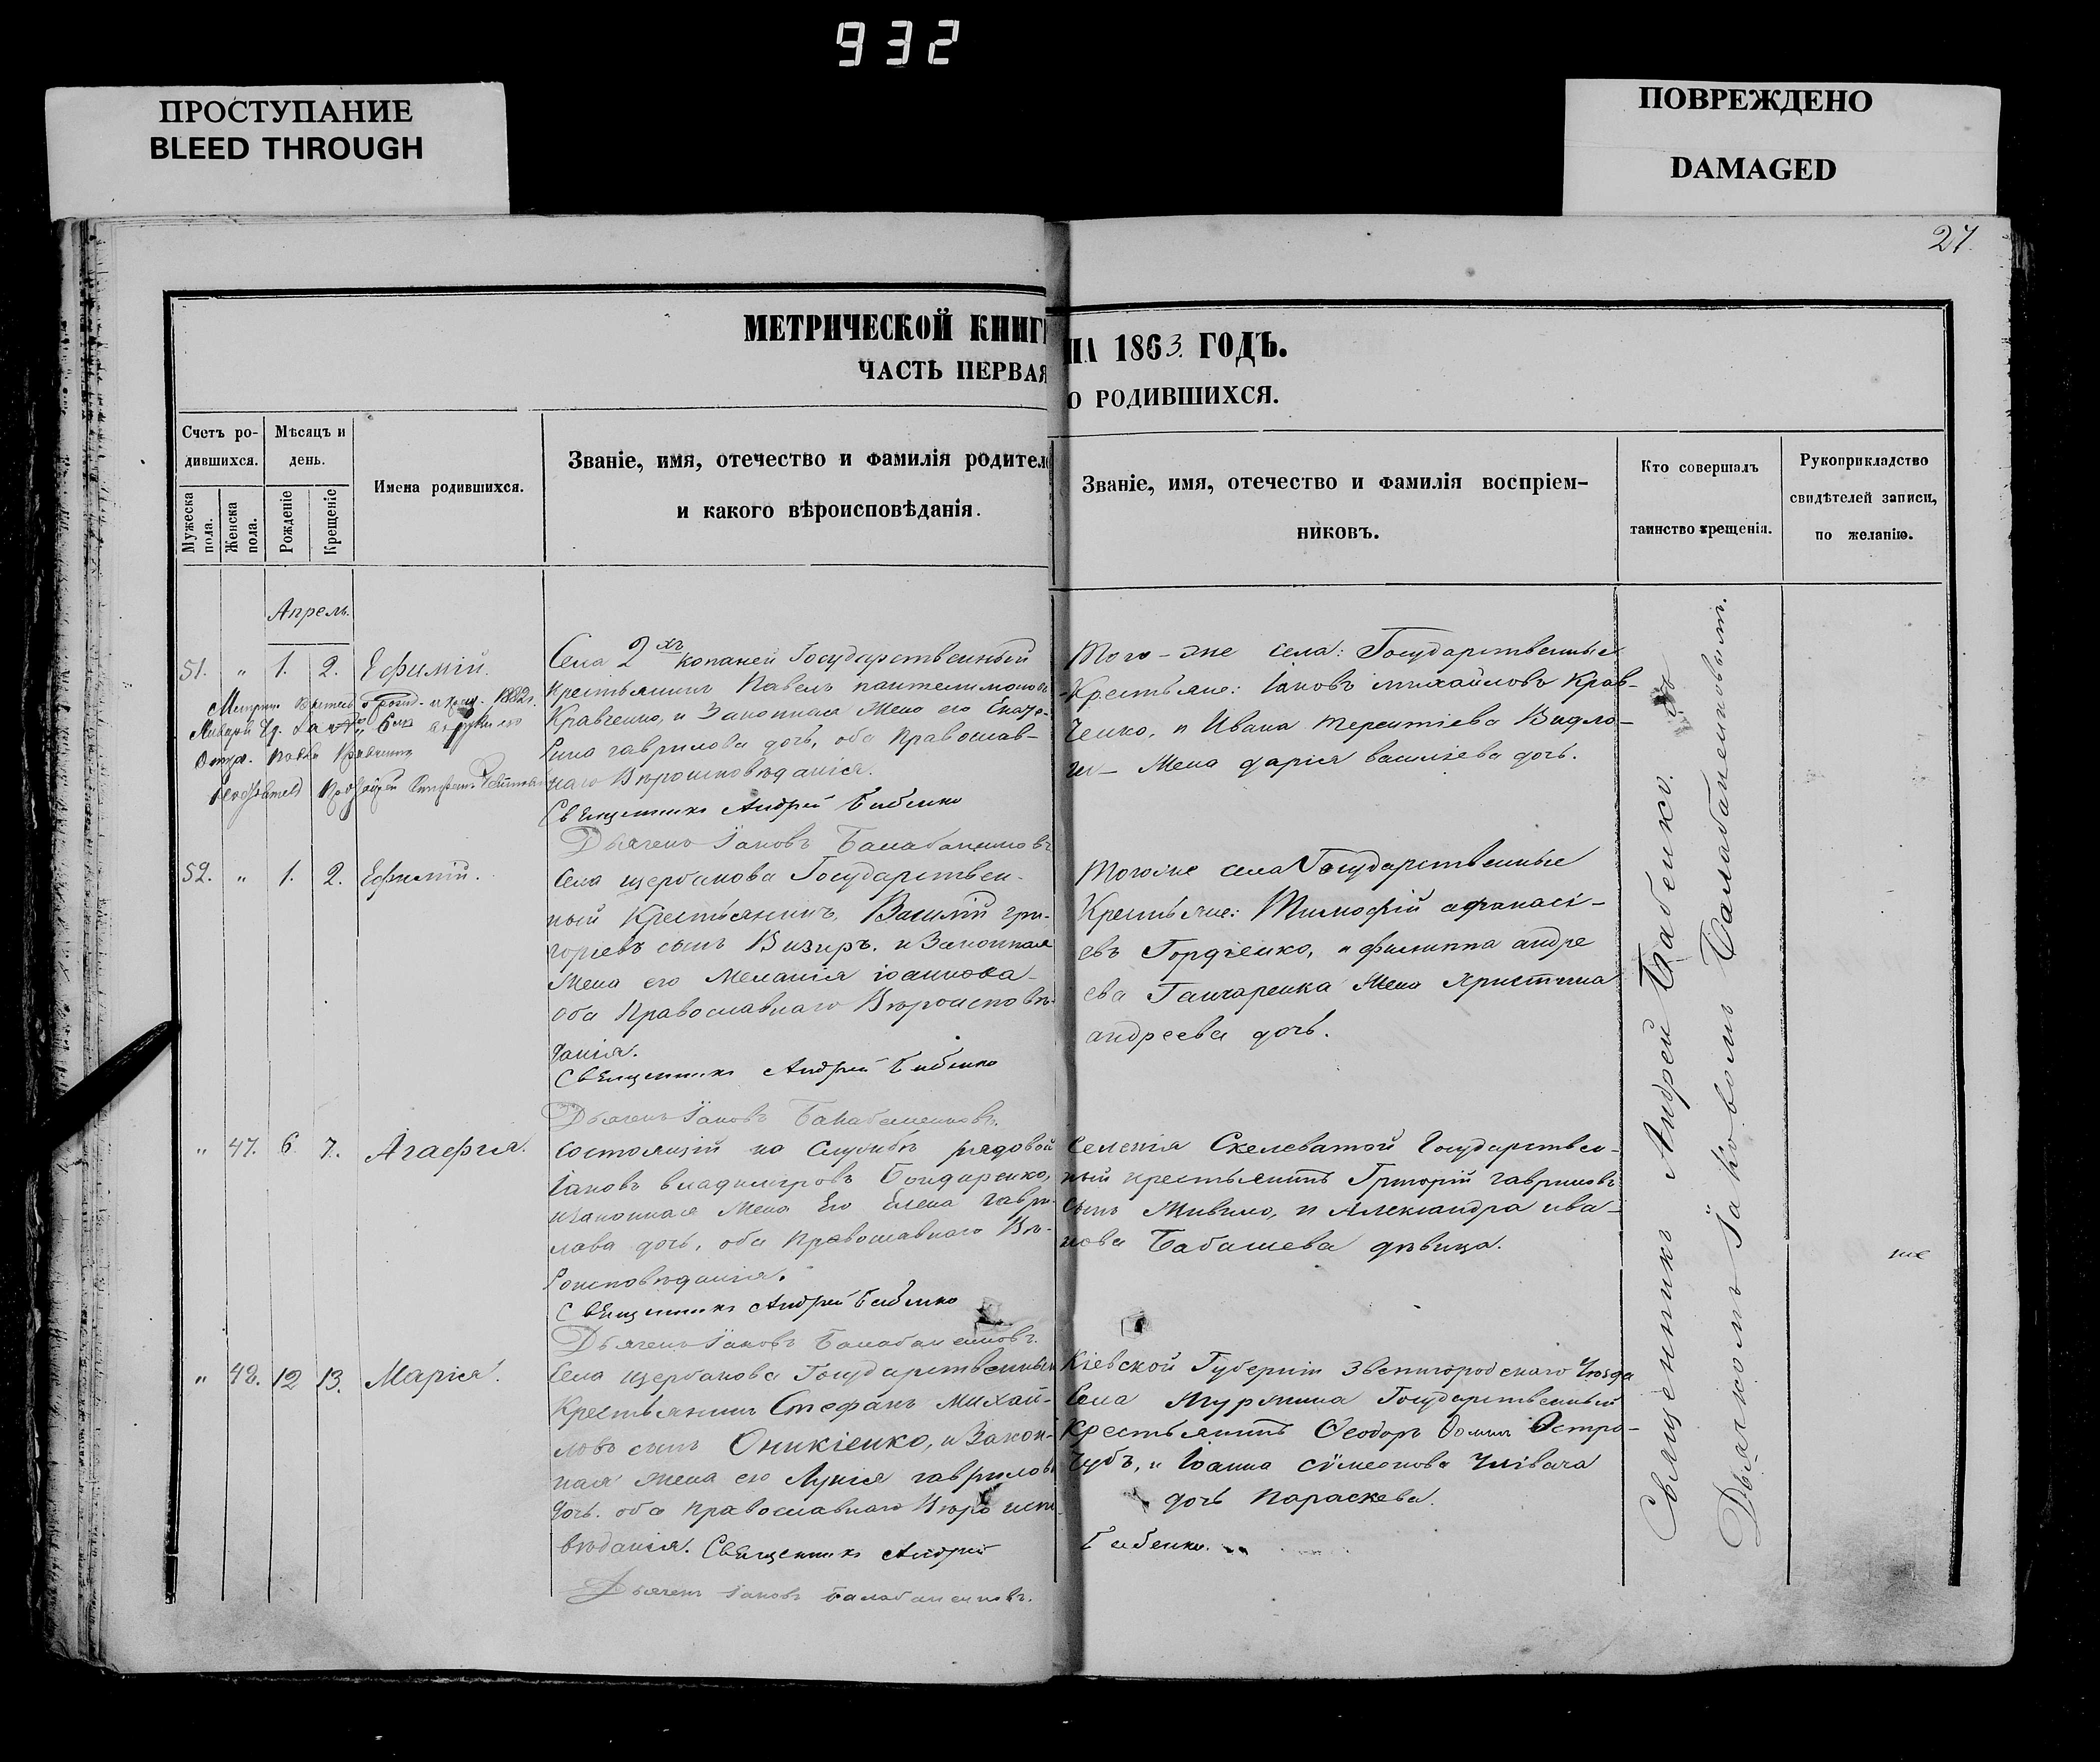 932
ПРОСТУПАНИЕ
BLEED THROUGH
ПОВРЕЖДЕНО
DAMAGED
27.
МЕТРИЧЕСКОЙ КНИГ
НА 1863. ГОДЪ.
ЧАСТЬ ПЕРВАЯ
О РОДИВШИХСЯ.
Счетъ ро-
дившихся.
Мужеска
пола.
Женска
пола.
Мѣсяцъ и
день.
Рожденіе
Крещеніе
Имена родившихся.
Званіе, имя, отечество и фамилія родител
и какого вѣроисповѣданія.
Званіе, имя, отечество и фамилія воспріем-
никовъ.
Кто совершалъ
таинство крещенія.
Рукоприкладство
свидѣтелей записи,
по желанію.
Апрель.
51. " 1. 2. Ефимій.
Села 2хъ Копаней Государственный
Крестьянинъ Павелъ пантелимоновъ
Кравченко, и Законная Жена его Екате-
рина гаврилова дочь, оба Православ-
наго Вѣроисповѣданія.
Священникъ Андрей Бабенко
Дьячекъ Іаковъ
Того-же села: Государственные
Крестьяне: Іаковъ михайловъ Крав-
ченко, и Ивана терентіева
Жена дарія василіева дочь.
52. " 1. 2. Ефимій.
Села щербанова Государствен-
ный Крестьянинъ, Василій гри-
горіевъ сынъ Визиръ. и Законная
Жена его Меланія іоаннова
оба Православнаго Вѣроисповѣ-
данія.
Священникъ Андрей Бабенко
Дьячекъ Іаковъ
Тогоже села Государственные
Крестьяне: Тимофій афанасі-
евъ Гордіенко, и филиппа андре
ева Ганчаренка Жена Христина
андреева дочь.
" 47. 6. 7. Агафія.
Состоящій на Службѣ рядовой
Іаковъ владимировъ Бондаренко,
и законная Жена Его Елена гаври-
лова дочь, оба Православнаго Вѣ-
роисповѣданія.
Священникъ Андрей Бабенко
Дьячекъ Іаковъ
Селенія Скелеватой Государствен-
ный крестьянинъ Григорій гавриловъ
сынъ Живило, и Александра ива-
нова Бабашева дѣвица.
" 48. 12 13. Марія.
Села щербанова Государственный
Крестьянинъ Стефанъ Михай-
ловъ сынъ Оникіенко, и Закон-
ная жена его Лукія гаврилов
дочь. оба православнаго Вѣроиспо-
вѣданія. Священникъ Андрей
Дьячекъ Іаковъ
Кіевской Губерніи Звенигородскаго Уѣзда
Села Государственный
Крестьянинъ Ѳеодоръ Ѳоминъ Остро-
чубъ, и Іоанна сѵмеонова
дочь Параскева.
Бабенко.
Священникъ Андрей Бабенко. съ
Дьячкомъ Іаковомъ